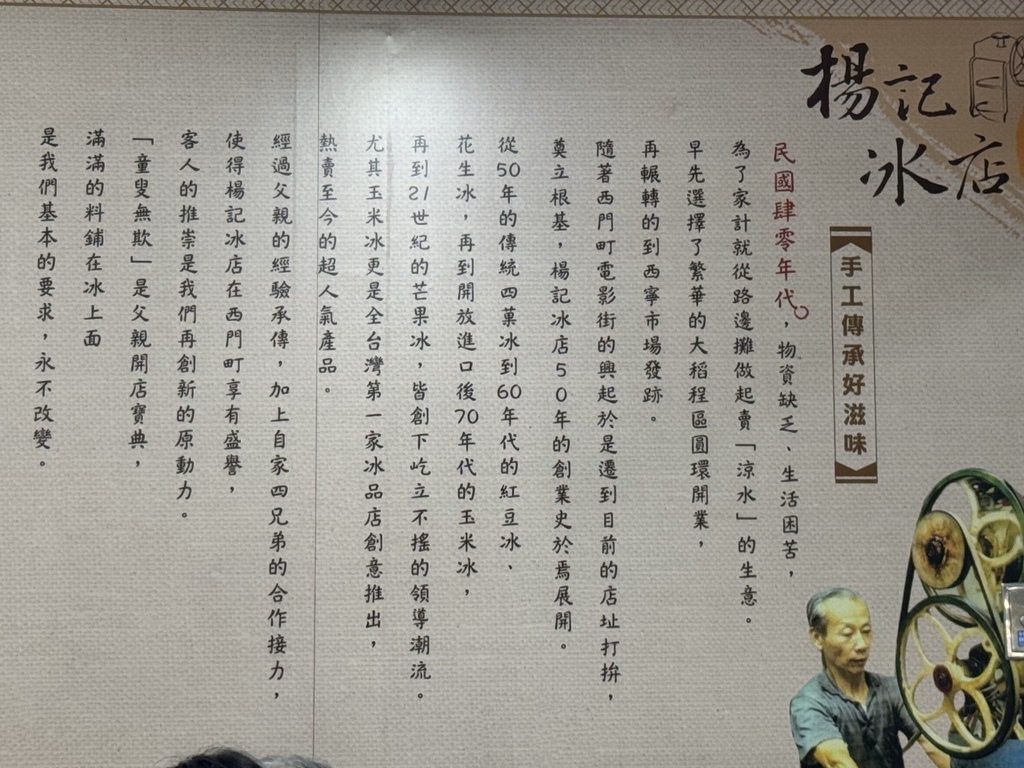 楊記
冰店
手工傳承好滋味
民國肆零年代，物資缺乏、生活困苦，
為了家計就從路邊攤做起賣「涼水」的生意。
早先選擇了繁華的大稻程區圓環開業，
再輾轉的到西寧市場發跡。
隨著西門町電影街的興起於是遷到目前的店址打拚，
奠立根基，楊記冰店50年的創業史於焉展開。
從50年的傳統四菓冰到60年代的紅豆冰、
花生冰，再到開放進口後70年代的玉米冰，
再到21世紀的芒果冰，皆創下屹立不搖的領導潮流。
尤其玉米冰更是全台灣第一家冰品店創意推出，
熱賣至今的超人氣產品。
經過父親的經驗承傳，加上自家四兄弟的合作接力，
使得楊記冰店在西門町享有盛譽，
客人的推崇是我們再創新的原動力。
「童叟無欺」是父親開店寶典，
滿滿的料鋪在冰上面
是我們基本的要求，永不改變。